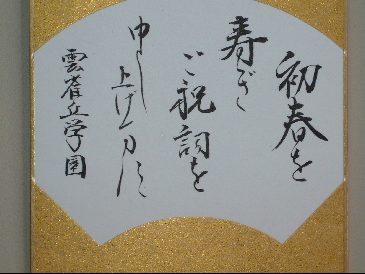 初春を
寿ぎ
ご祝詞を
申し上げます
雲雀丘学園